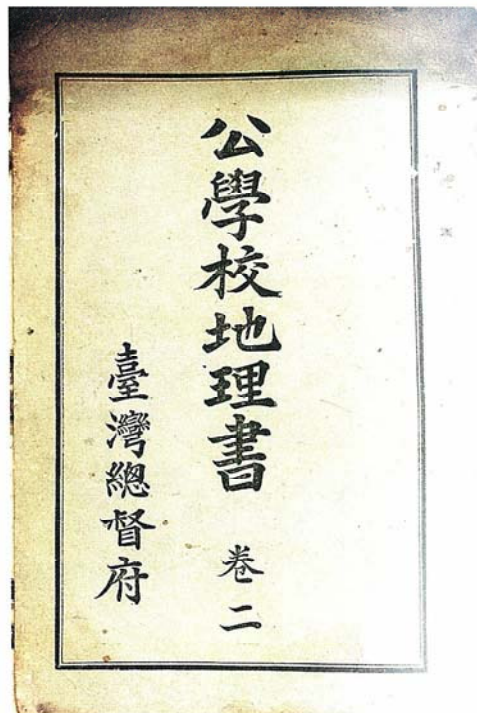 公學校地理書 卷二
臺灣總督府